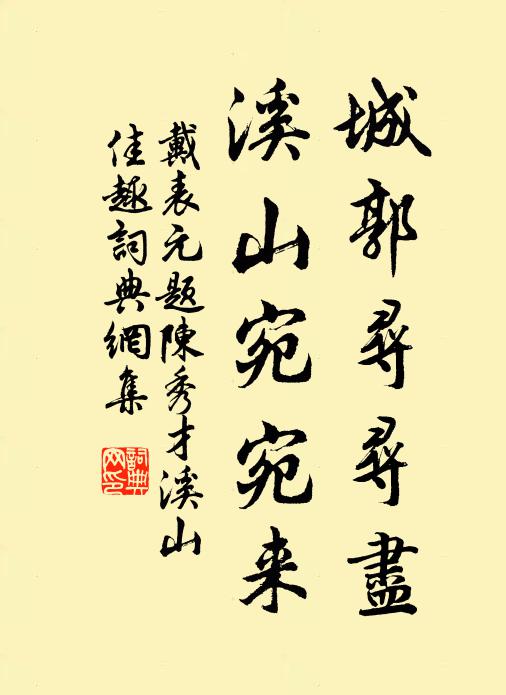 城郭尋尋盡
溪山宛宛来
戴表元題陳秀才溪山
佳趣詞典網集
詞典
网印